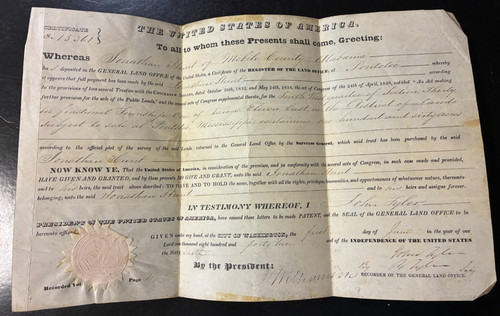 THE UNITED STATES OF AMERICA,
CERTIFICATE
No. 13361
To all to whom these Presents shall come, Greeting:
Whereas Jonathan Hunt of Mobile County Alabama
has deposited in the GENERAL LAND OFFICE of the United States, a Certificate of the REGISTER OF THE LAND OFFICE at Pontotoc whereby
it appears that full payment has been made by the said Jonathan Hunt according
to the provisions of two several Treaties with the Chickasaw Indians, dated October 20th, 1832, and May 24th, 1834, of the act of Congress of the 24th of April, 1820, entitled "An Act making
further provision for the sale of the Public Lands," and the several acts of Congress supplemental thereto, for the South
in Township of Range Eleven East in the District of Lands
subject to sale at Pontotoc Mississippi containing hundred and
according to the official plat of the survey of the said Lands returned to the General Land Office by the Surveyor General, which said tract has been purchased by the said
Jonathan Hunt
NOW KNOW YE, That the United States of America, in consideration of the premises, and in conformity with the several acts of Congress, in such case made and provided,
HAVE GIVEN AND GRANTED, and by these presents DO GIVE AND GRANT, unto the said Jonathan Hunt
and to his heirs, the said tract above described: TO HAVE AND TO HOLD the same, together with all the rights, privileges, immunities, and appurtenances of whatsoever nature, thereunto
belonging, unto the said Jonathan Hunt and to his heirs and assigns forever.
IN TESTIMONY WHEREOF, I John Tyler
PRESIDENT OF THE UNITED STATES OF AMERICA, have caused these letters to be made PATENT, and the SEAL of the GENERAL LAND OFFICE to be
hereunto affixed.
GIVEN under my hand, at the CITY OF WASHINGTON, the first day of June in the year of our
Lord one thousand eight hundred and forty two and of the INDEPENDENCE OF THE UNITED STATES
the sixty sixth
By the President: John Tyler
By Tyler Sec
RECORDER OF THE GENERAL LAND OFFICE.
Recorded Vol Page